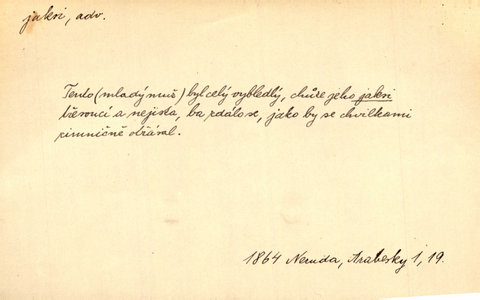 jaksi, adv.
Tento (mladý muž) byl celý vybledlý, chůze jeho jaksi
třesoucí a nejista, ba zdálo se, jako by se chvilkami
zimničně otřásal.
1864 Neruda, Arabesky 1, 19.